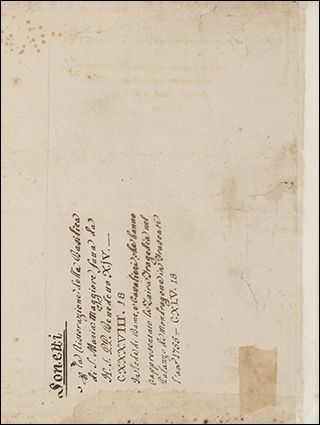 Sonetti
Per la Risturazione della Basilica
di S. Maria Maggiore fatta da
N. S. PP. Benedetto XIV. —
CXXXVIII. 18
In lode di Dame, e Cavalieri, che hanno
rappresentato la Zaira Tragedia nel
Palazzo di Mondragone in Frascati
l'anno 1755 — CXLV. 18